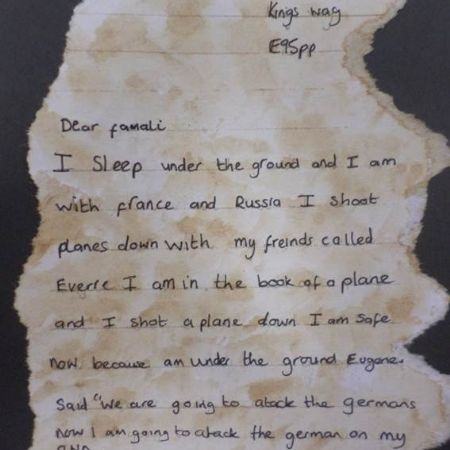 Kings way
E95pp
Dear famali
I Sleep under the ground and I am
with france and Russia I shoot
planes down with my freinds called
Everre I am in the book of a plane
and I shot a plane down I am safe
now because am under the ground Eugene.
Said "we are going to atack the germans
now I am going to atack the german on my